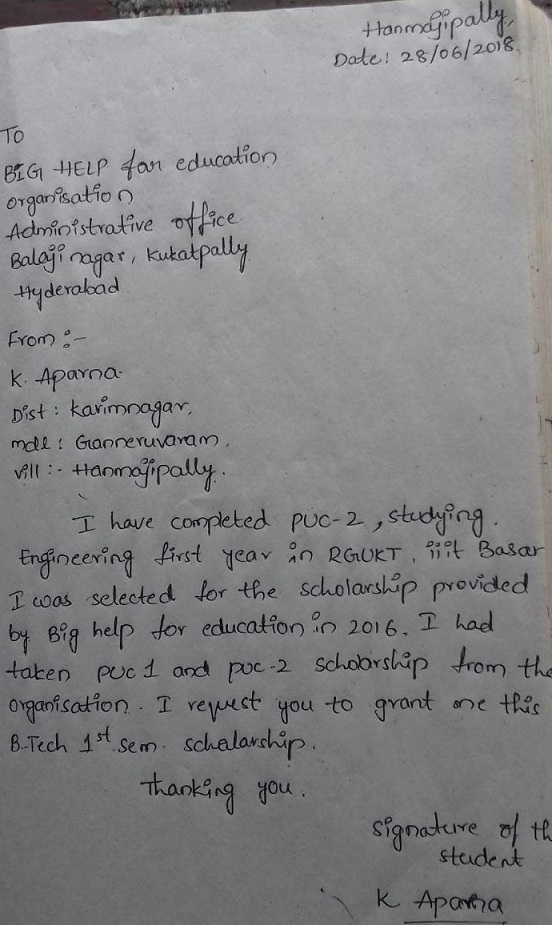 Hanmajipally,
Date: 28/06/2018.
To
BIG HELP for education
organisation
Administrative office
Balaji nagar, Kukatpally
Hyderabad
From :-
K. Aparna.
Dist : Karimnagar,
mdl : Ganneruvaram,
vill :- Hanmajipally.
I have completed PUC-2, studying.
Engineering first year in RGUKT, iiit Basar
I was selected for the scholarship provided
by Big help for education in 2016. I had
taken PUC 1 and PUC-2 scholarship from the
organisation. I request you to grant me this
B.Tech 1st sem. schalarship.
Thanking you.
Signature of th
student
K Aparna